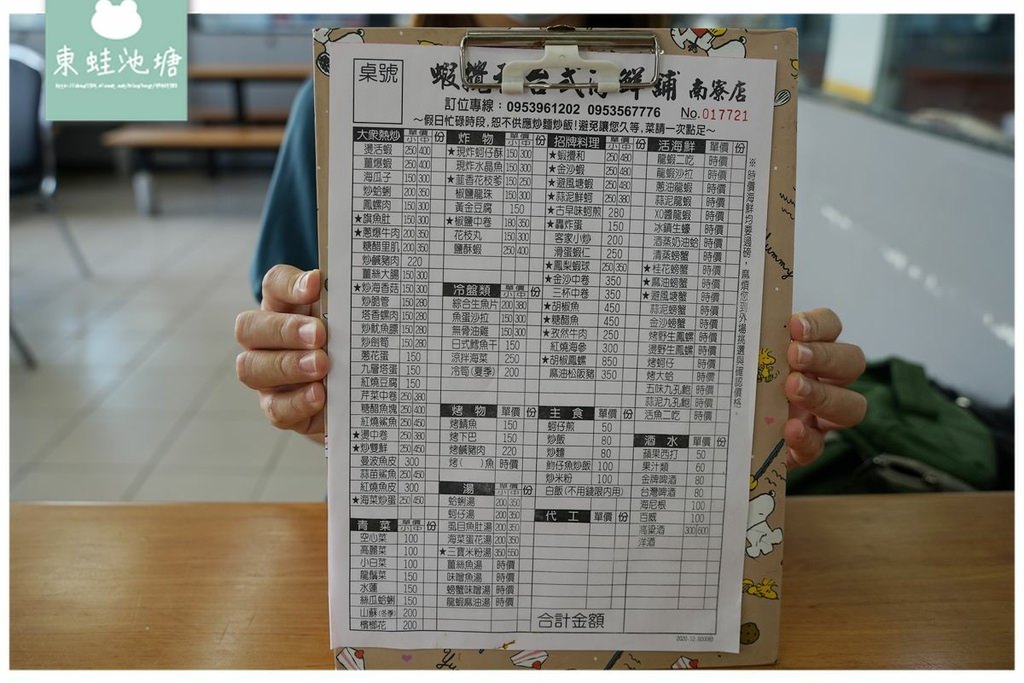 東蛙池塘
桌號
台式海鮮舖 南寮店
訂位專線：0953961202 0953567776 No.017721
～假日忙碌時段,恕不供應炒麵炒飯!避免讓您久等,菜請一次點足～
※時價海鮮均要過磅,麻煩您到外場挑選與確認價格。
大衆熱炒 單價 小 中 份
燙活蝦 200 400
薑爆蝦 200 400
海瓜子 150 300
炒蛤蜊 200 350
鳳螺肉 150 300
★旗魚肚 150 300
★蔥爆牛肉 200 350
糖醋里肌 200 350
炒鹹豬肉 220
薑絲大腸 150 300
★炒海香菇 150 300
炒脆管 150 280
塔香螺肉 150 280
炒魷魚鏢 150 280
炒劍筍 150 280
蔥花蛋 150
九層塔蛋 150
紅燒豆腐 150
芹菜中卷 250 380
糖醋魚塊 250 400
紅燒鯊魚 250 450
★燙中卷 250 380
★炒雙鮮 250 450
曼波魚皮 300
蒜苗鯊魚 250 450
紅燒魚皮 300
★海菜炒蛋 250 450
青菜 單價 小 中 份
空心菜 100
高麗菜 100
小白菜 100
龍鬚菜 150
水蓮 150
絲瓜蛤蜊 150
山蘇(冬季) 200
檳榔花 200
炸物 單價 小 中 份
★現炸蚵仔酥 150 300
現炸水晶魚 150 300
★韮香花枝爹 150 250
椒鹽龍珠 150 300
黃金豆腐 150
★椒鹽中卷 180 350
花枝丸 150 300
鹽酥蝦 250 400
冷盤類 單價 小 中 份
綜合生魚片 200 380
魚蛋沙拉 150 300
無骨油雞 150 300
日式鱈魚干 150
涼拌海菜 250
冷筍(夏季) 200
烤物 單價 份
烤鯖魚 150
烤下巴 150
烤鹹豬肉 220
烤( )魚 時價
湯 單價 小 中 份
蛤蜊湯 200 350
蚵仔湯 200 350
虱目魚肚湯 200 350
海菜蛋花湯 200 350
★三寶米粉湯 350 550
薑絲魚湯 時價
味噌魚湯 時價
螃蟹味噌湯 時價
龍蝦麻油湯 時價
招牌料理 單價 小 中 份
★蝦攪和 250 480
★金沙蝦 250 480
★避風塘蝦 250 480
★蒜泥鮮蚵 250 380
★古早味蚵煎 280
★轟炸蛋 150
客家小炒 200
滑蛋蝦仁 250
★鳳梨蝦球 250 350
★金沙中卷 350
三杯中卷 350
★胡椒魚 450
★糖醋魚 450
★孜然牛肉 250
紅燒海參 300
★胡椒鳳螺 850
麻油松阪豬 350
主食 單價 份
蚵仔煎 50
炒飯 80
炒麵 80
魩仔魚炒飯 100
炒米粉 100
白飯(不用錢限內用)
代工 單價 份
合計金額
活海鮮 單價 份
龍蝦二吃 時價
龍蝦沙拉 時價
蔥油龍蝦 時價
蒜泥龍蝦 時價
XO醬龍蝦 時價
冰鎮生蠔 時價
酒蒸奶油蛤 時價
清蒸螃蟹 時價
★桂花螃蟹 時價
★麻油螃蟹 時價
★避風塘蟹 時價
蒜泥螃蟹 時價
金沙螃蟹 時價
烤野生鳳螺 時價
燙野生鳳螺 時價
烤蚵仔 時價
烤大蛤 時價
五味九孔鮑 時價
蒜泥九孔鮑 時價
活魚二吃 時價
酒水 單價 份
蘋果西打 50
果汁類 60
金牌啤酒 80
台灣啤酒 80
海尼根 100
百威 100
高粱酒 300 600
洋酒